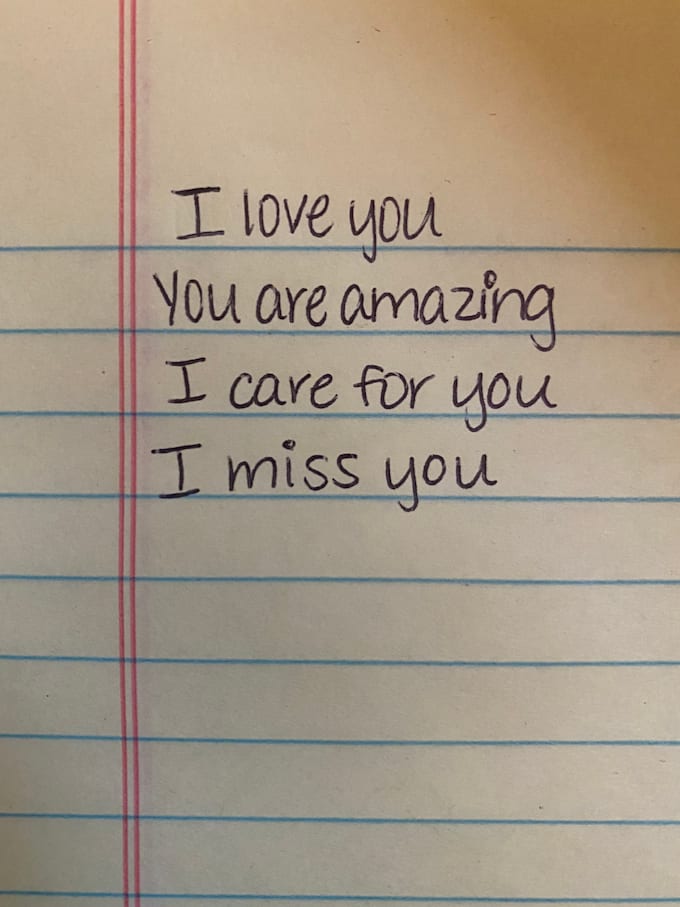 I love you
You are amazing
I care for you
I miss you